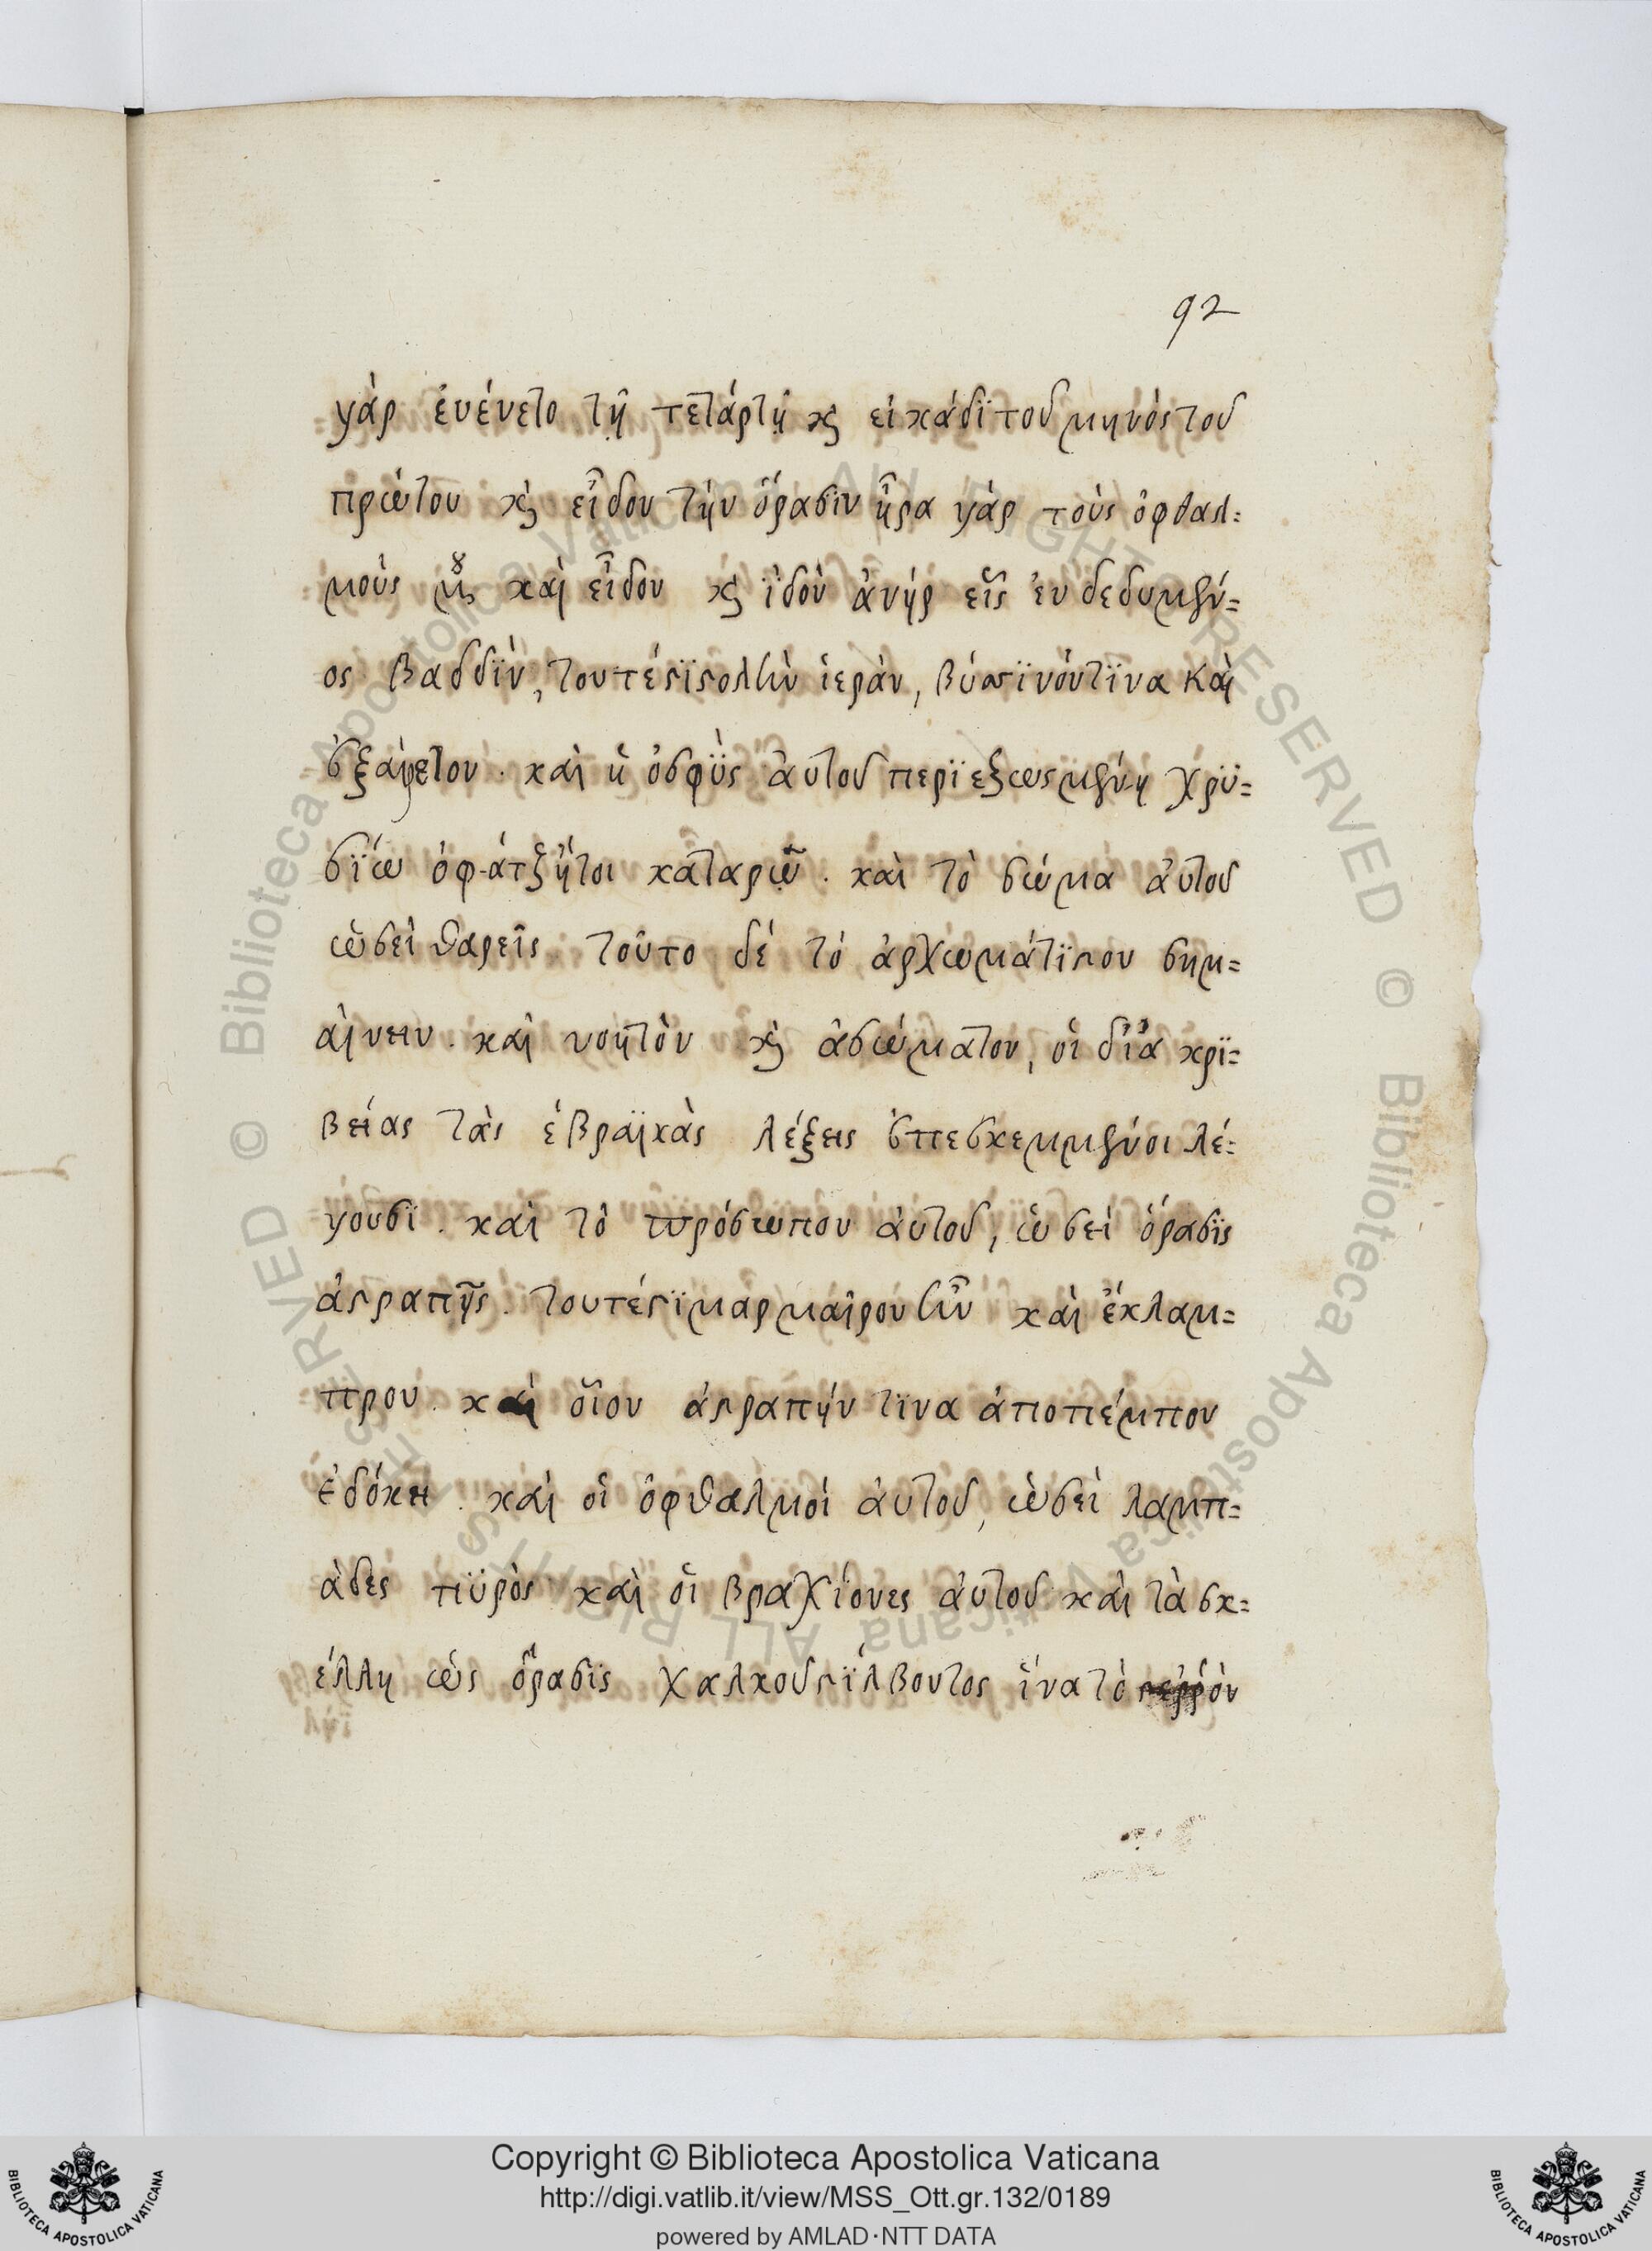 92
γὰρ ἐγένετο τῇ τετάρτῃ κ εἰκάδϊ τοῦ μηνὸς τοῦ
πρώτου κ εἶδον τὴν ὅρασϊν ἦρα γὰρ τοὺς ὀφθαλ=
μοὺς μȣ καὶ εἶδον κ ϊδοὺ ἀνὴρ εἷς ἐν δεδυμέν=
ος βαδδϊν, τουτέστϊ στολὴν ἱερὰν, βύσσϊνόν τϊνα καὶ
ἐξαίρετον. καὶ ἡ ὀσφϋς ἀυτοῦ περϊεξωσμένη χρϋ=
σϊω ὀφ-ὰτζ ἤτοι καταρῶ. καὶ τὸ σῶμα ἀυτοῦ
ὡσεὶ θαρεῖς τοῦτο δέ τὸ ἀρχωμάτϊστον σημ=
αίνειν. καὶ νοητὸν κ ἀσώματον, οἱ δϊἀ κρϊ=
βείας τὰς ἑβραϊκὰς λέξεις ἐπεσκεμμένοι λέ=
γουσϊ. καὶ τὸ πρόσωπον ἀυτοῦ, ὡσεὶ ὅρασϊς
ἀστραπῆς. τουτέστϊ μαρμαῖρον ἦν καὶ ἔκλαμ=
προν καὶ οἷον ἀστραπὴν τϊνα ἀποπέμπον
ἐδόκει. καὶ οἱ ὀφθαλμοὶ ἀυτοῦ, ὡσεὶ λαμπ=
ὰδες πϋρὸς καὶ οἱ βραχίονες ἀυτοῦ καὶ τὰ σκ=
έλλη ὡς ὅρασϊς χαλκοῦ στϊλβοντος ἵνα τὸ στερρὸν
Copyright © Biblioteca Apostolica Vaticana
http://digi.vatlib.it/view/MSS_Ott.gr.132/0189
powered by AMLAD·NTT DATA